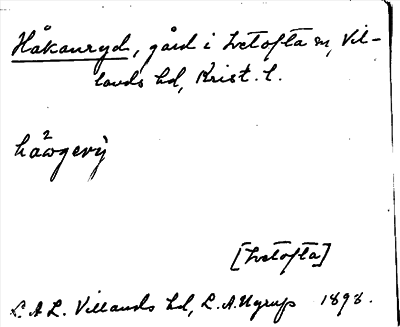 Håkanryd, gård i Ivetofta sn, Vil-
lands hd, Krist. l.
hå²wgerÿ
[Ivetofta]
L.A.L. Villands hd, L. A. Ugrup 1898.